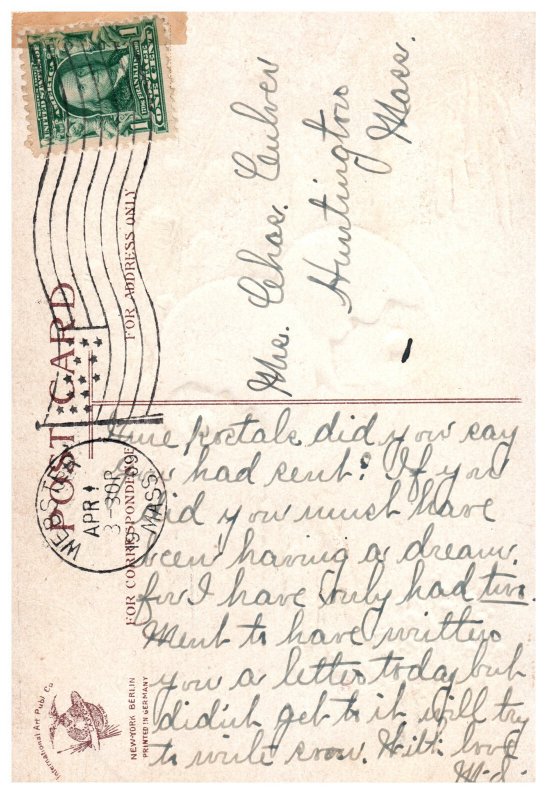 UNITED STATES OF AMERICA
FRANKLIN
1 ONE CENT 1
WEBSTER
APR 1
3-30P
1909
MASS.
POST CARD
FOR ADDRESS ONLY
Mrs. Chas. Culver
Huntington
Mass.
FOR CORRESPONDENCE
Nine postals did you say
you had sent? If you
did you must have
been having a dream
for I have only had two.
Ment to have written
you a letter today but
didn't get to it will try
to write soon. With love
International Art Publ Co
NEW-YORK BERLIN
PRINTED IN GERMANY